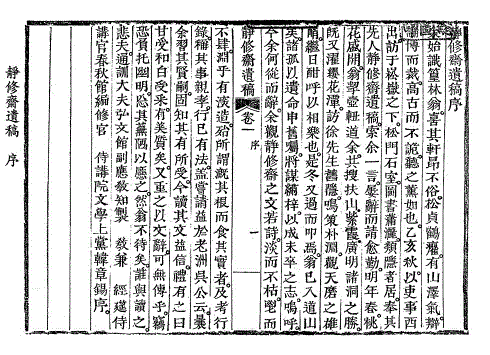 靜修齋遺稿序
始識篁林翁喜其軒昂不俗松貞鶴癯有山澤氣辯
博而裁高古而不詭聽之薰如也乙亥秋以吏事西
出訪于崧嶽之下松門石室圖書蕭灑類隱者居奉其
先人靜修齋遺稿索余一言屢辭而請愈勤明年春桃
花盛開翁挈壺道余共搜扶山紫霞廣明諸洞之勝
旣又濯纓花潭訪徐先生舊隱鳴策朴淵觀天磨之雄
留日酣呼以相樂也是冬又過而弔焉翁已入道山
矣諸孤以遺命申舊囑將謀繡梓以成未卒之志嗚呼
今余何從而辭余觀靜修齋之文若詩淡而不枯慤而
靜修齋遺稿 卷一 序 一
不肆淵乎有淡造殆所謂漑其根而食其實者及考行
錄稱其事親孝行已有法盖嘗請益於老洲吳公云曩
余習其賢嗣固知其有所受今讀其文益信禮有之曰
甘受和白受采有美質矣又重之以文辭可無傳乎竊
恐負托幽明隱其蕪陋以應之然翁不待矣誰與讀之
悲夫通訓大夫弘文館副應敎知製 敎兼 經筵侍
講官春秋館編修官 侍講院文學上黨韓章錫序
靜修齋遺稿 序